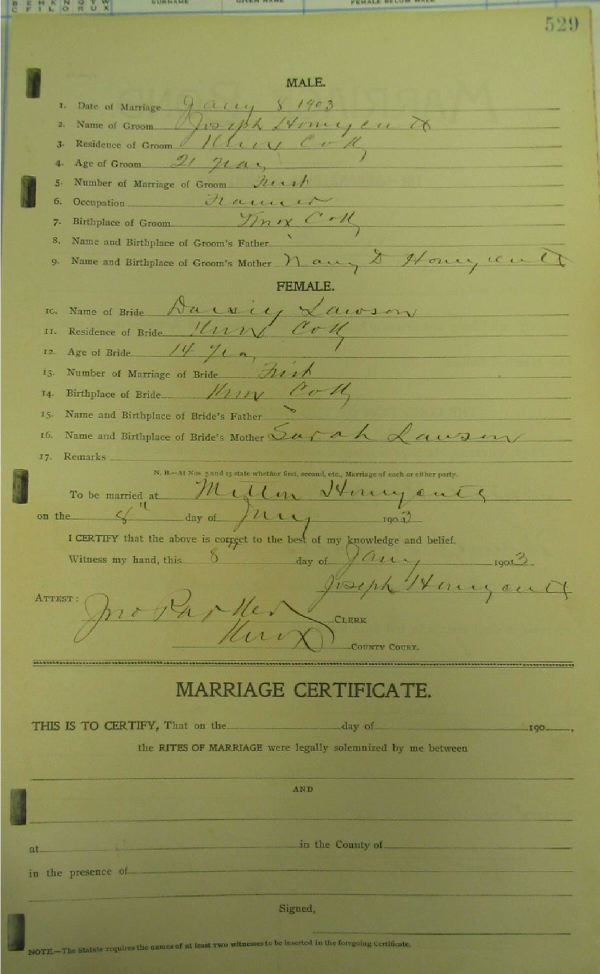 SURNAME GIVEN NAME FEMALE BELOW MALE
529
MALE.
1. Date of Marriage Jany 8 1903
2. Name of Groom Joseph Honeycutt
3. Residence of Groom Knox Coty
4. Age of Groom 21 years
5. Number of Marriage of Groom First
6. Occupation Farmer
7. Birthplace of Groom Knox Coty
8. Name and Birthplace of Groom's Father
9. Name and Birthplace of Groom's Mother Nancy D Honeycutt
FEMALE.
10. Name of Bride Lawson
11. Residence of Bride Knox Coty
12. Age of Bride 14 years
13. Number of Marriage of Bride First
14. Birthplace of Bride Knox Coty
15. Name and Birthplace of Bride's Father
16. Name and Birthplace of Bride's Mother Sarah Lawson
17. Remarks
N. B.—At Nos. 5 and 13 state whether first, second, etc., Marriage of each or either party.
To be married at Honeycutts
on the 8" day of Jany 1903
I CERTIFY that the above is correct to the best of my knowledge and belief.
Witness my hand, this 8" day of Jany 1903.
Joseph Honeycutt
ATTEST: Jno Parker CLERK
Knox COUNTY COURT.
MARRIAGE CERTIFICATE.
THIS IS TO CERTIFY, That on the day of 190
the RITES OF MARRIAGE were legally solemnized by me between
AND
at in the County of
in the presence of
Signed,
NOTE.—The Statute requires the names of at least two witnesses to be inserted in the foregoing Certificate.